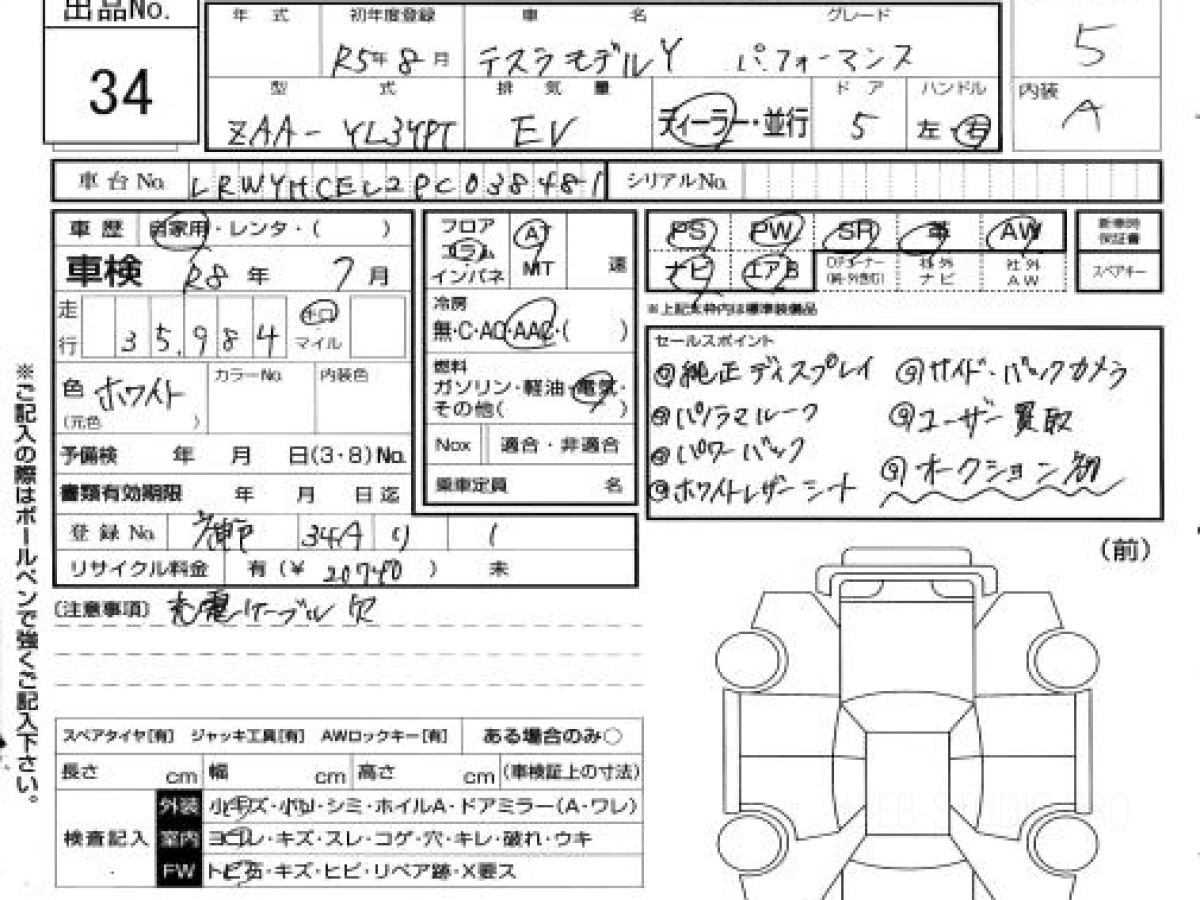 出品No.
34
年 式 初年度登録 車 名 グレード
R5年8月 テスラモデルY パフォーマンス
型 式 排 気 量 ドア ハンドル
ZAA-YL3YPT EV ディーラー・並行 5 左・右
5
内装
A
車台No. LRWYHCEL2PC038481 シリアルNo.
車歴 自家用・レンタ・( )
車検 R8年7月
走行 35,984 キロ マイル
色 ホワイト (元色 ) カラーNo. 内装色
予備検 年 月 日(3・8)No.
書類有効期限 年 月 日迄
登録No. 34A り 1
リサイクル料金 有(¥20740) 未
フロア コラム インパネ AT MT 速
冷房
無・C・AC・AAC・( )
燃料
ガソリン・軽油・電気・
その他( )
Nox 適合・非適合
乗車定員 名
PS PW SR 革 AW 新車時保証書
ナビ エアB 社外ナビ 社外AW スペアキー
※上記太枠内は標準装備品
セールスポイント
純正ディスプレイ サイド・バックカメラ
パノラマルーフ ユーザー買取
パワーバック オークション初
ホワイトレザーシート
(注意事項) 充電ケーブル欠
(前)
スペアタイヤ[有] ジャッキ工具[有] AWロックキー[有] ある場合のみ○
長さ cm 幅 cm 高さ cm (車検証上の寸法)
検査記入
外装 小キズ・小凹・シミ・ホイルA・ドアミラー(A・ワレ)
室内 ヨゴレ・キズ・スレ・コゲ・穴・キレ・破れ・ウキ
FW トビ石・キズ・ヒビ・リペア跡・X要ス
※ご記入の際はボールペンで強くご記入下さい。